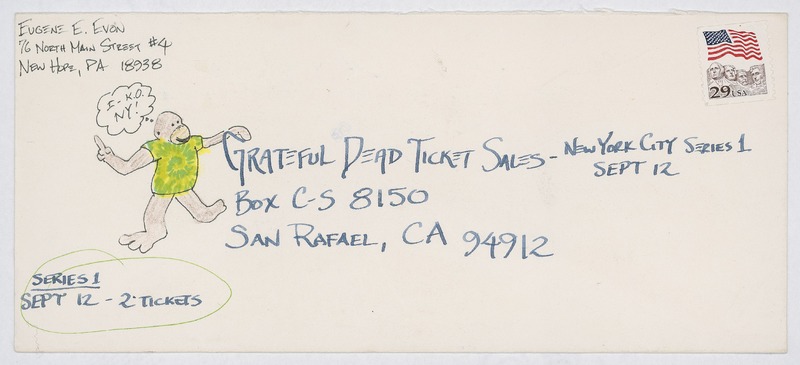 EUGENE E. EVON
76 NORTH MAIN STREET #4
NEW HOPE, PA 18938
I-K.O.
NY!
29 USA
GRATEFUL DEAD TICKET SALES - NEW YORK CITY SERIES 1
SEPT 12
BOX C-S 8150
SAN RAFAEL, CA 94912
SERIES 1
SEPT 12 - 2 TICKETS